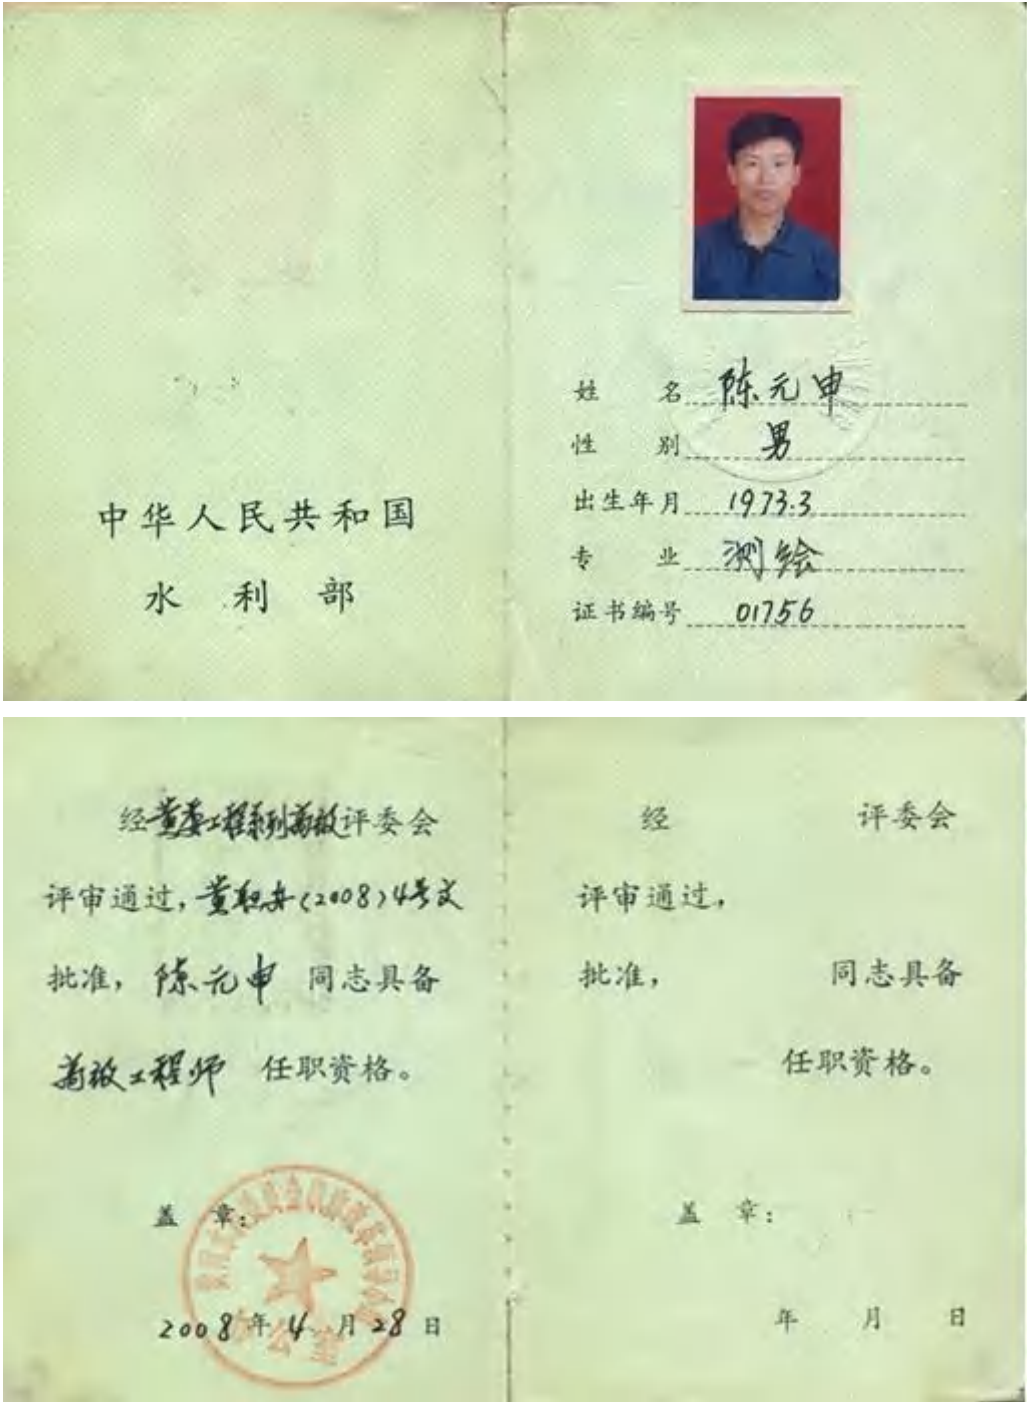 中华人民共和国
水利部
姓名 陈元申
性别 男
出生年月 1973.3
专业 测绘
证书编号 01756
经黄委工程系列高级评委会
评审通过，黄职办(2008)4号文
批准，陈元申 同志具备
高级工程师 任职资格。
盖章：
2008年4月28日
经 评委会
评审通过，
批准， 同志具备
任职资格。
盖章：
年 月 日